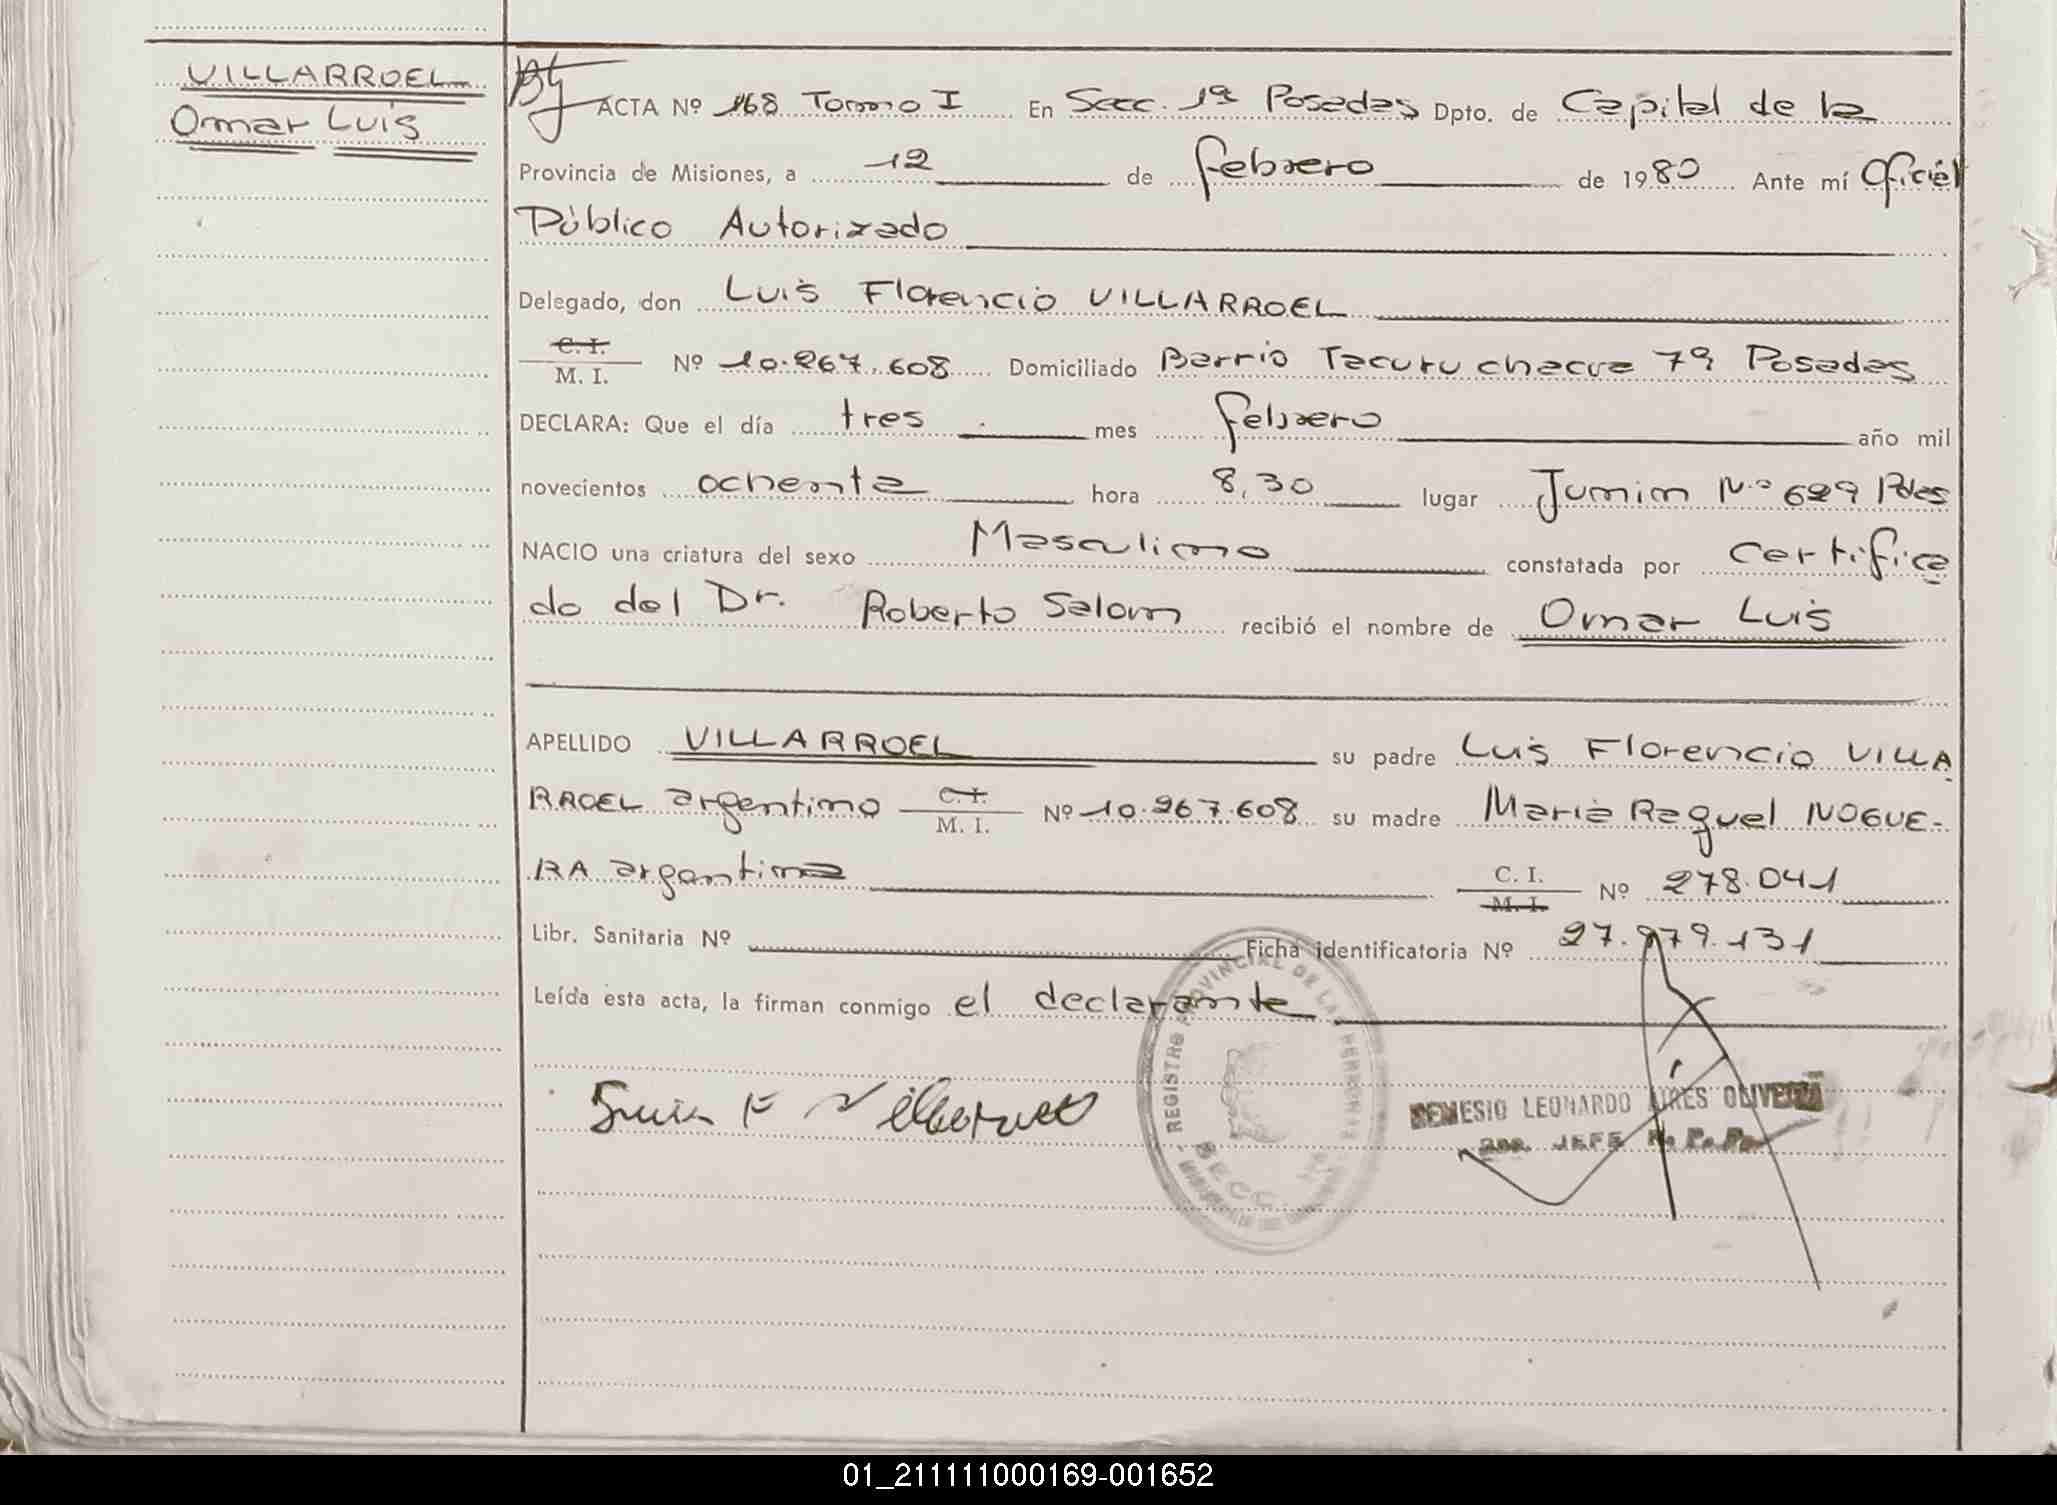 VILLARROEL
Omar Luis
ACTA Nº 168 Tomo I En Secc. 1ª Posadas Dpto. de Capital de la
Provincia de Misiones, a 12 de febrero de 1980 Ante mí Oficial
Público Autorizado
Delegado, don Luis Florencio VILLARROEL
C. I.
M. I. Nº 10.267.608 Domiciliado Barrio Tacuru chacra 79 Posadas
DECLARA: Que el día tres mes febrero año mil
novecientos ochenta hora 8,30 lugar Junin Nº 629 Pdas
NACIO una criatura del sexo Masculino constatada por certifica
do del Dr. Roberto Salom recibió el nombre de Omar Luis
APELLIDO VILLARROEL su padre Luis Florencio VILLA
RROEL argentino C. I. M. I. Nº 10.267.608 su madre Maria Raquel NOGUE-
RA argentina C. I. M. I. Nº 278.041
Libr. Sanitaria Nº Ficha identificatoria Nº 27.979.131
Leída esta acta, la firman conmigo el declarante
REGISTRO PROVINCIAL DE LAS PERSONAS
SECC. 1ra
NEMESIO LEONARDO AIRES OLIVEIRA
JEFE
01_211111000169-001652